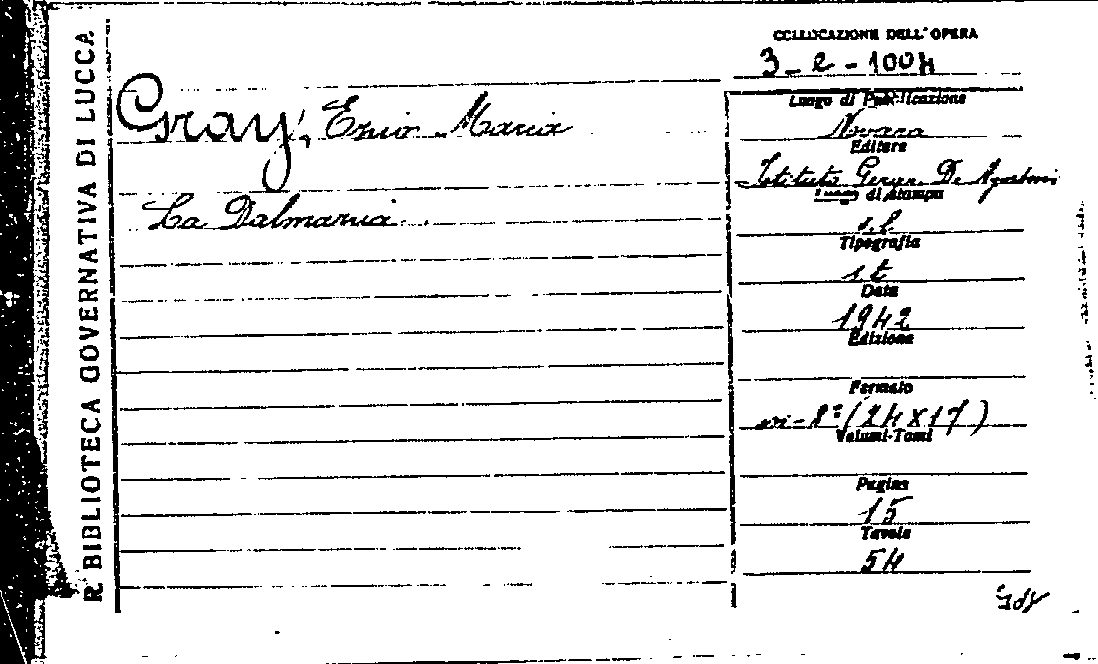 R. BIBLIOTECA GOVERNATIVA DI LUCCA
COLLOCAZIONE DELL'OPERA
3-2-1004
Gray, Ezio Maria
La Dalmazia
Luogo di Pubblicazione
Novara
Editore
Istituto Geogr. De Agostini
Luogo di stampa
s.l.
Tipografia
s.t.
Data
1942
Edizione
Formato
in-8° (24x17)
Volumi-Tomi
Pagine
15
Tavole
54